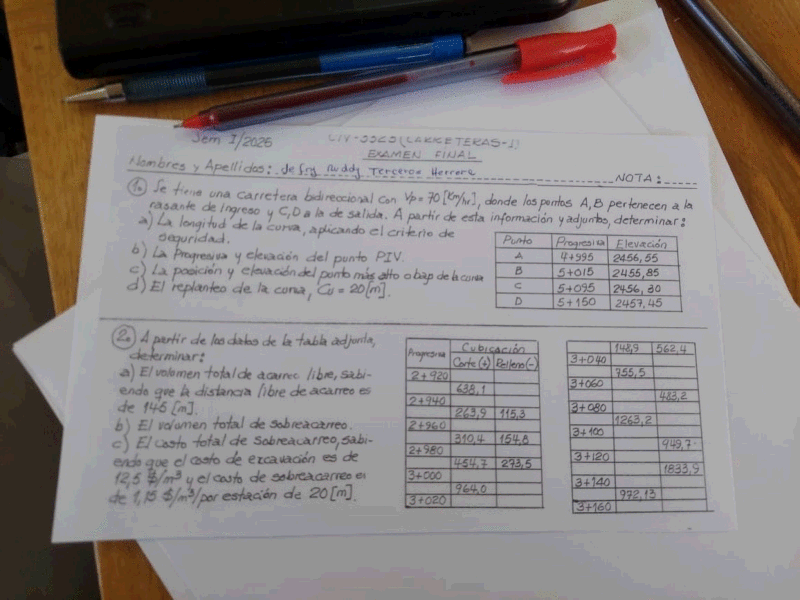 Sem I/2025
CIV-3323 (CARRETERAS-I)
EXAMEN FINAL
Nombres y Apellidos: Ruddy Terceros Herrera
NOTA:
1. Se tiene una carretera bidireccional con Vp = 70 [Km/hr], donde los puntos A,B pertenecen a la
rasante de ingreso y C,D a la de salida. A partir de esta información y adjuntos, determinar:
a) La longitud de la curva, aplicando el criterio de
seguridad.
b) La Progresiva y elevación del punto PIV.
c) La posición y elevación del punto más alto o bajo de la curva
d) El replanteo de la curva, Cu = 20 [m].
Punto Progresiva Elevación
A 4+995 2456,55
B 5+015 2455,85
C 5+095 2456,30
D 5+150 2457,45
2. A partir de los datos de la tabla adjunta,
determinar:
a) El volumen total de acarreo libre, sabi-
endo que la distancia libre de acarreo es
de 145 [m].
b) El volumen total de sobreacarreo.
c) El costo total de sobreacarreo, sabi-
endo que el costo de excavación es de
12,5 $/m³ y el costo de sobreacarreo es
de 1,15 $/m³/por estación de 20 [m].
Progresiva Cubicación
Corte (+) Relleno (-)
2+920
638,1
2+940
263,9 115,3
2+960
310,4 154,8
2+980
454,7 273,5
3+000
964,0
3+020
148,9 562,4
3+040
755,5
3+060
483,2
3+080
1263,2
3+100
949,7
3+120
1833,9
3+140
972,13
3+160